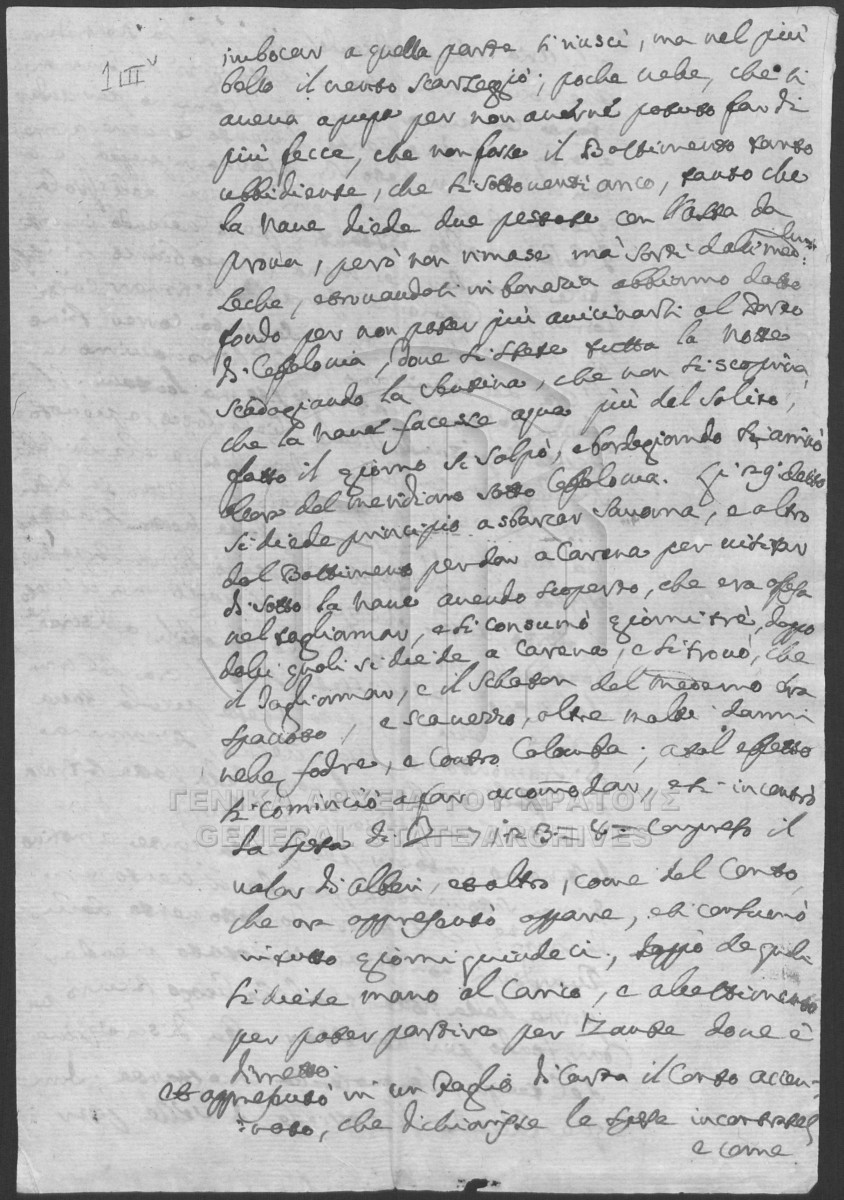 1 III v
imbocar a quella parte ti riuscì, ma nel più
bello il vento scarzeggiò; poche vele, che si
aveva a pupa per non averne potuto far di
più fecce, che non fosse il Bastimento tanto
ubbidiente, che si sottoventi anco, tanto che
la Nave diede due pestate con l'asta da
prova, però non rimase mà sortì dalli
Leche, e trovandosi in bonazza abbiamo dato
fondo per non poter più avicinarsi al Porto
di Ceffalonia, dove si stete tutta la notte
scadagiando la sentina, che non si scopriva
che la Nave facesse aqua più del solito,
fatto il giorno si salpò, e bordegiando si arrivò
al'ora del meridiano sotto Ceffalonia. Gi 29 detto
si diede principio a sbarcar savorna, e altro
dal Bastimento per dar a Carena per visitar
di sotto la Nave avendo scoperto, che era offesa
nel tagliamar, e si consumò giorni trè, dopo
delli quali si diede a Carena, e si trovò, che
il Tagliamar, e il del medemo era
spacato, e scavezzo, altre molti danni
nelle fodre, e Contro Colomba; a tal effetto
si cominciò a far accomodar, e si incontrò
la spesa di compreso il
valor di alberi, ed altro, come dal Conto,
che ora appresentò appare, e si consumò
in tutto giorni quindeci, doppò de quali
si diede mano al Carico, e al Bastimento
per poter partire per Zante dove è
diretto.
Et appresentò in un foglio di carta il Conto accen-
nato, che dichiarisse le spese incontrate
e come
ΓΕΝΙΚΑ ΑΡΧΕΙΑ ΤΟΥ ΚΡΑΤΟΥΣ
GENERAL STATE ARCHIVES